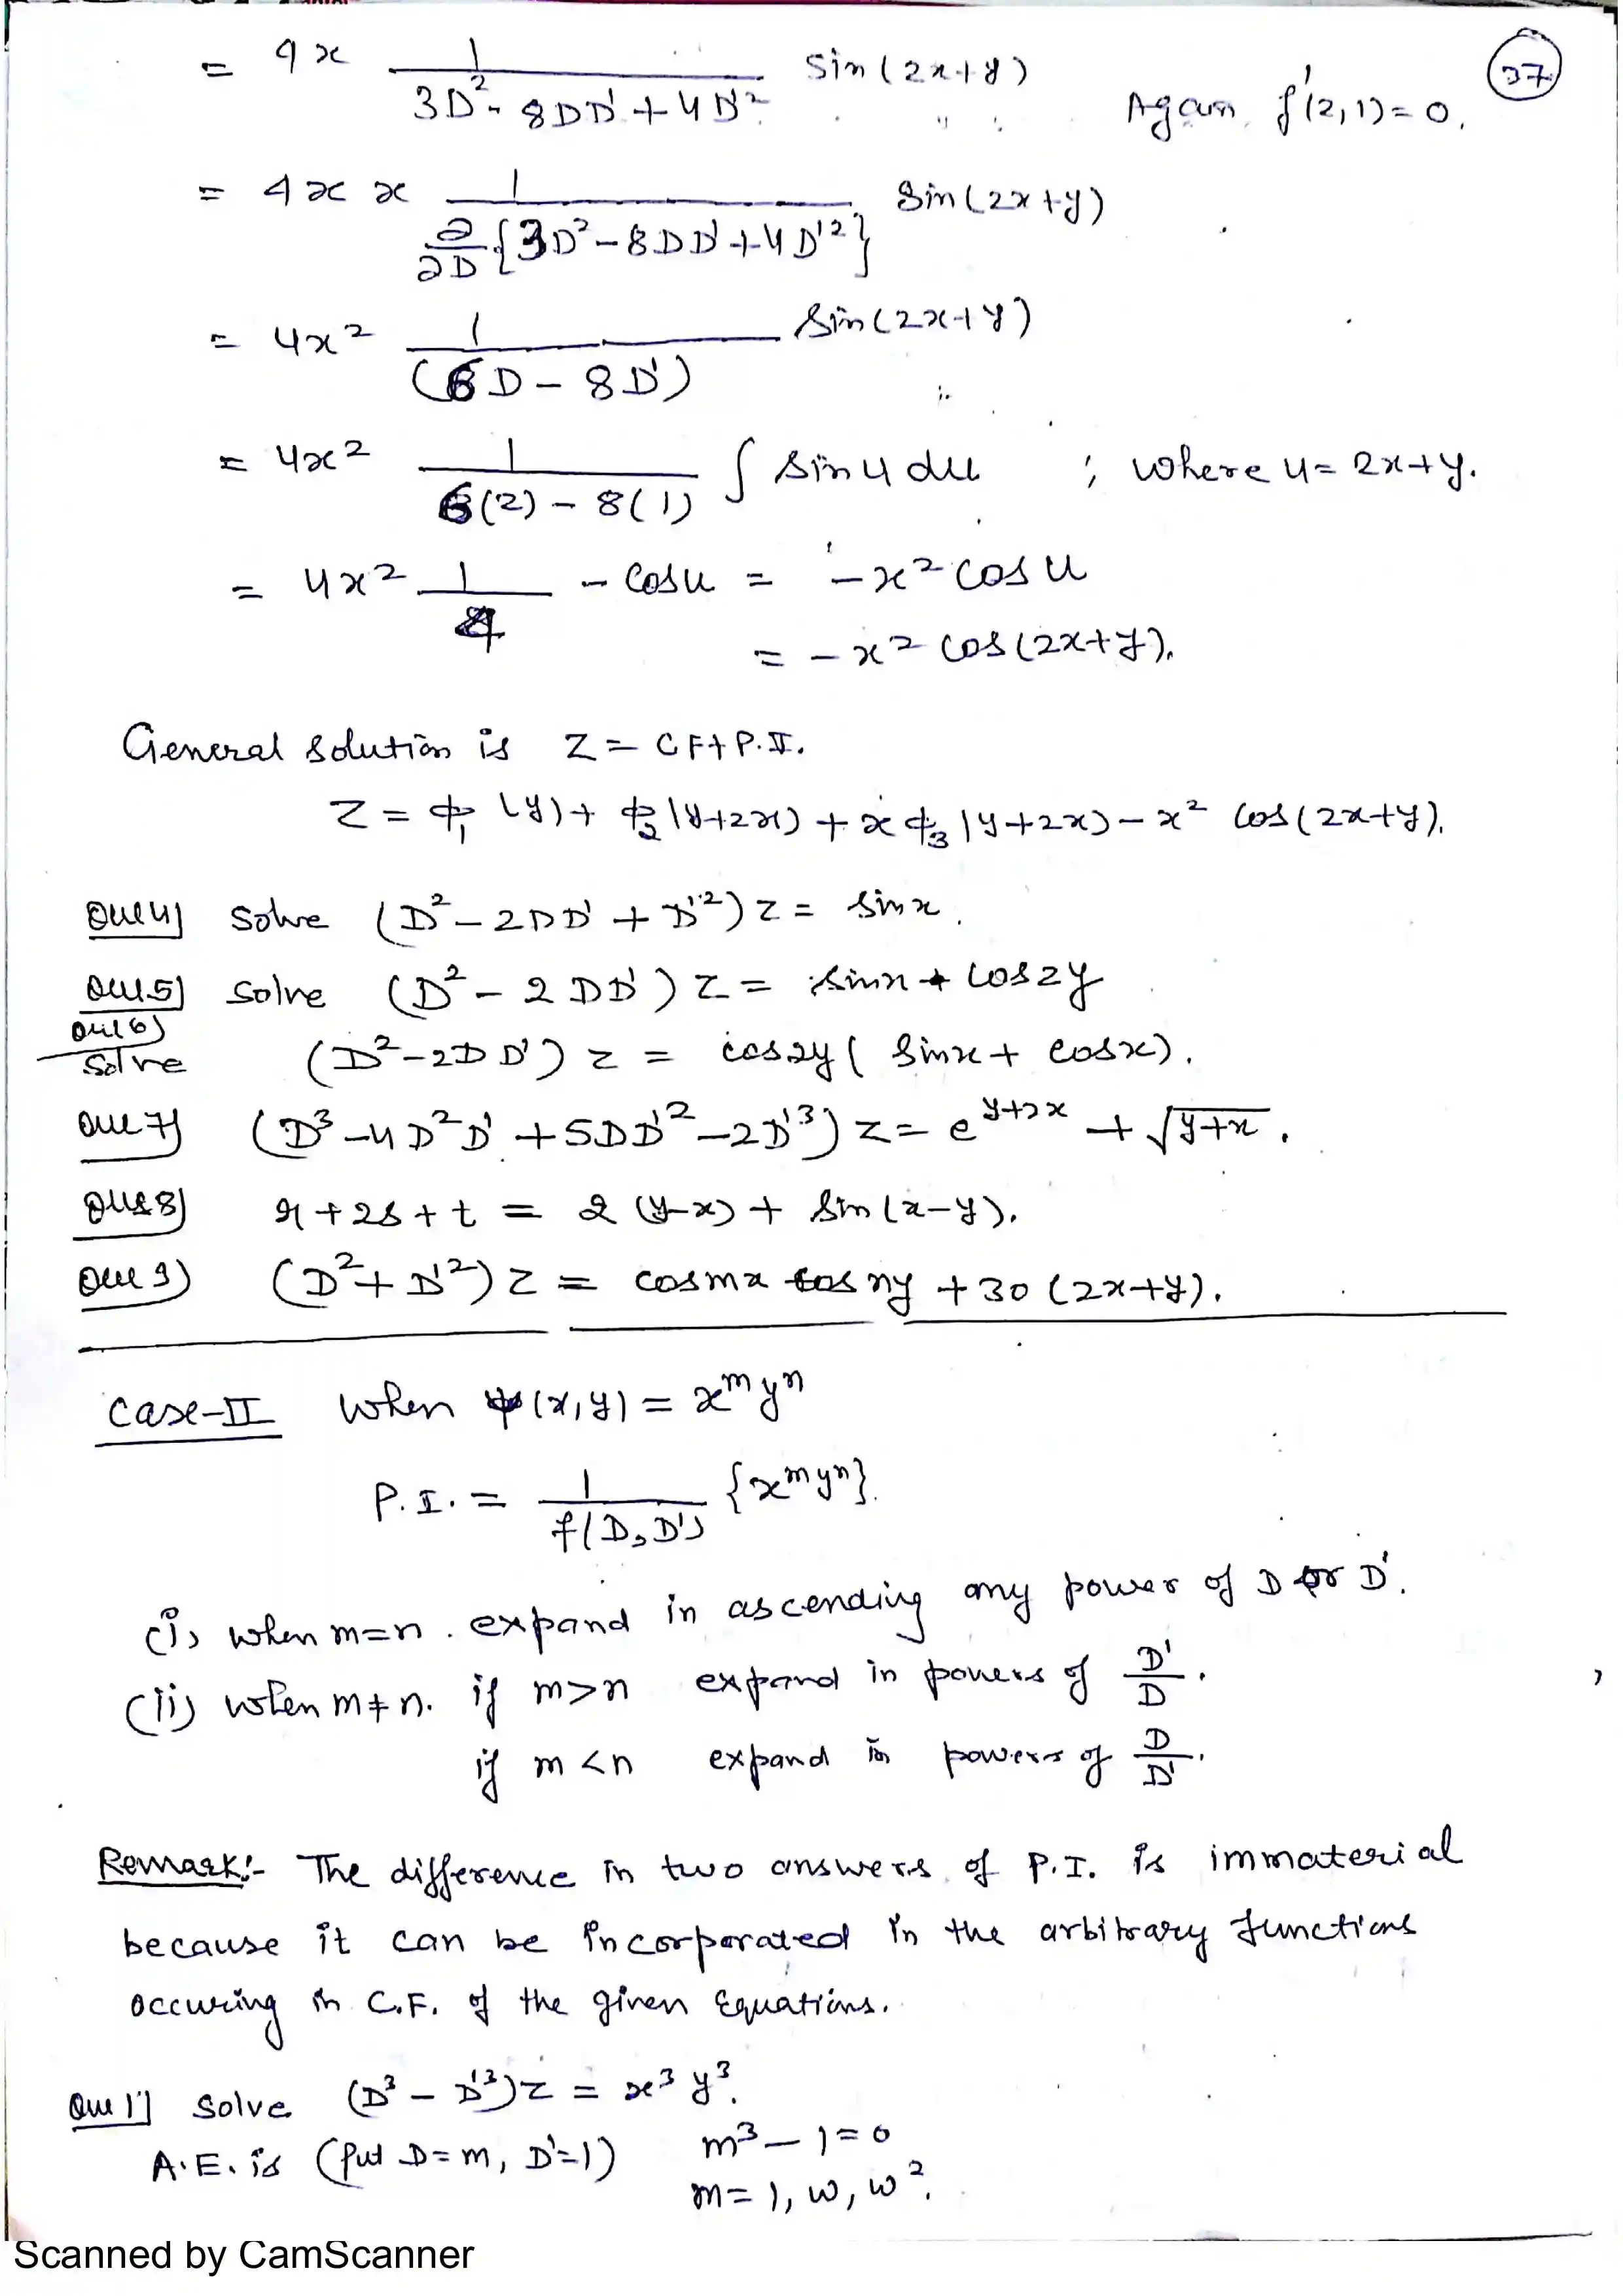 37
= 4x 1/(3D² - 8DD' + 4D'²) Sin(2x+y) Again, f'(2,1)=0.
= 4x x 1/(∂/∂D {3D² - 8DD' + 4D'²}) Sin(2x+y)
= 4x² 1/(6D - 8D') Sin(2x+y)
= 4x² 1/(6(2) - 8(1)) ∫ sin u du ; where u = 2x+y.
= 4x² 1/4 - cosu = -x² cos u
= -x² cos(2x+y).
General solution is Z = CF + P.I.
Z = ϕ₁(y) + ϕ₂(y+2x) + xϕ₃(y+2x) - x² cos(2x+y).
Que 4) Solve (D² - 2DD' + D'²) Z = sinx.
Que 5) Solve (D² - 2DD') Z = sinx + cos2y
Que 6)
Solve (D² - 2DD') z = cos2y (sinx + cosx).
Que 7) (D³ - 4D²D' + 5DD'² - 2D'³) z = e^(y+2x) + √(y+x).
Que 8) r + 2s + t = 2(y-x) + sin(x-y).
Que 9) (D² + D'²) z = cosmx cos ny + 30(2x+y).
Case-II When ψ(x,y) = x^m y^n
P.I. = 1/f(D,D') {x^m y^n}.
(i) when m=n. expand in ascending any power of D or D'.
(ii) when m≠n. if m>n expand in powers of D'/D.
if m<n expand in powers of D/D'.
Remark:- The difference in two answers of P.I. is immaterial
because it can be incorporated in the arbitrary functions
occuring in C.F. of the given Equations.
Que 1) Solve (D³ - D'³)z = x³y³.
A.E. is (Put D=m, D'=1) m³-1=0
m=1, w, w².
Scanned by CamScanner